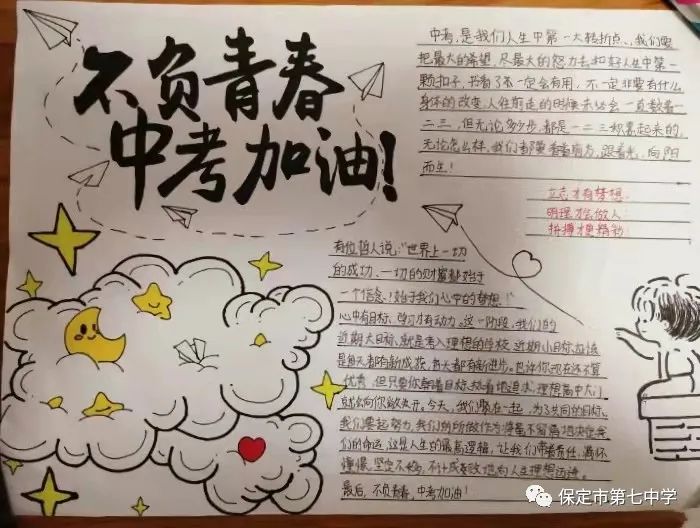 不负青春
中考加油!
中考,是我们人生中第一大转折点、,我们要
把最大的希望,尽最大的努力去扣好人生中第一
颗扣子,书看了不一定会有用,不一定非要有什么
身体的改变,人在前走的时候未必会一直数着一
二三,但无论多少步,都是一二三积累起来的,
无论怎么样,我们都要看着前方,跟着光,向阳
而生!
立志才有梦想
明理才会做人
拼搏才更精彩
有位哲人说:"世界上一切
的成功、一切的财富都始于
一个信念!始于我们心中的梦想!"
心中有目标,学习才有动力。这一阶段,我们的
近期大目标,就是考入理想的学校,近期小目标应该
是每天都有新成花,每天都有新进步。也许你现在还不算
优秀,但只要你朝着目标,执着地追求,理想高中大门
就会向你敞开。今天,我们聚在一起,为了共同的目标,
我们要起努力,我们的所做作为将毫不留情地决定我
们的命运,这是人生的最高逻辑,让我们带着责任,满怀
憧憬,坚定不移,不计成败地向人生理想迈进。
最后,不负青春,中考加油!
保定市第七中学